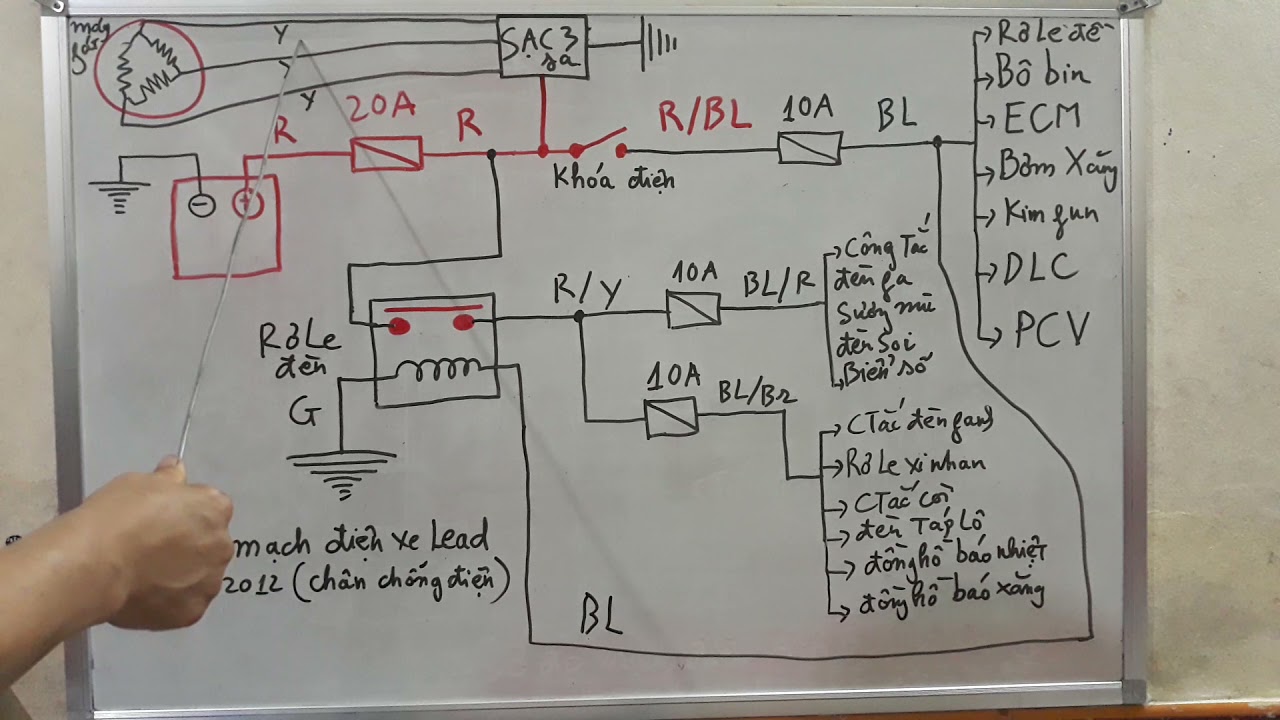 máy
Y
Y
Y
SẠC 3
R
20A
R
Khóa điện
R/BL
10A
BL
Rơ Le đề
Bô bin
ECM
Bơm Xăng
Kim fun
DLC
PCV
Rơ Le
đèn
G
R/Y
10A
BL/R
Công Tắc
đèn fa
Sương mù
đèn Soi
Biển số
10A
BL/Br
CTắc đèn fanh
Rơ Le xi nhan
CTắc còi
đèn Táp Lô
đồng hồ báo nhiệt
đồng hồ báo xăng
mạch điện xe Lead
2012 (chân chống điện)
BL